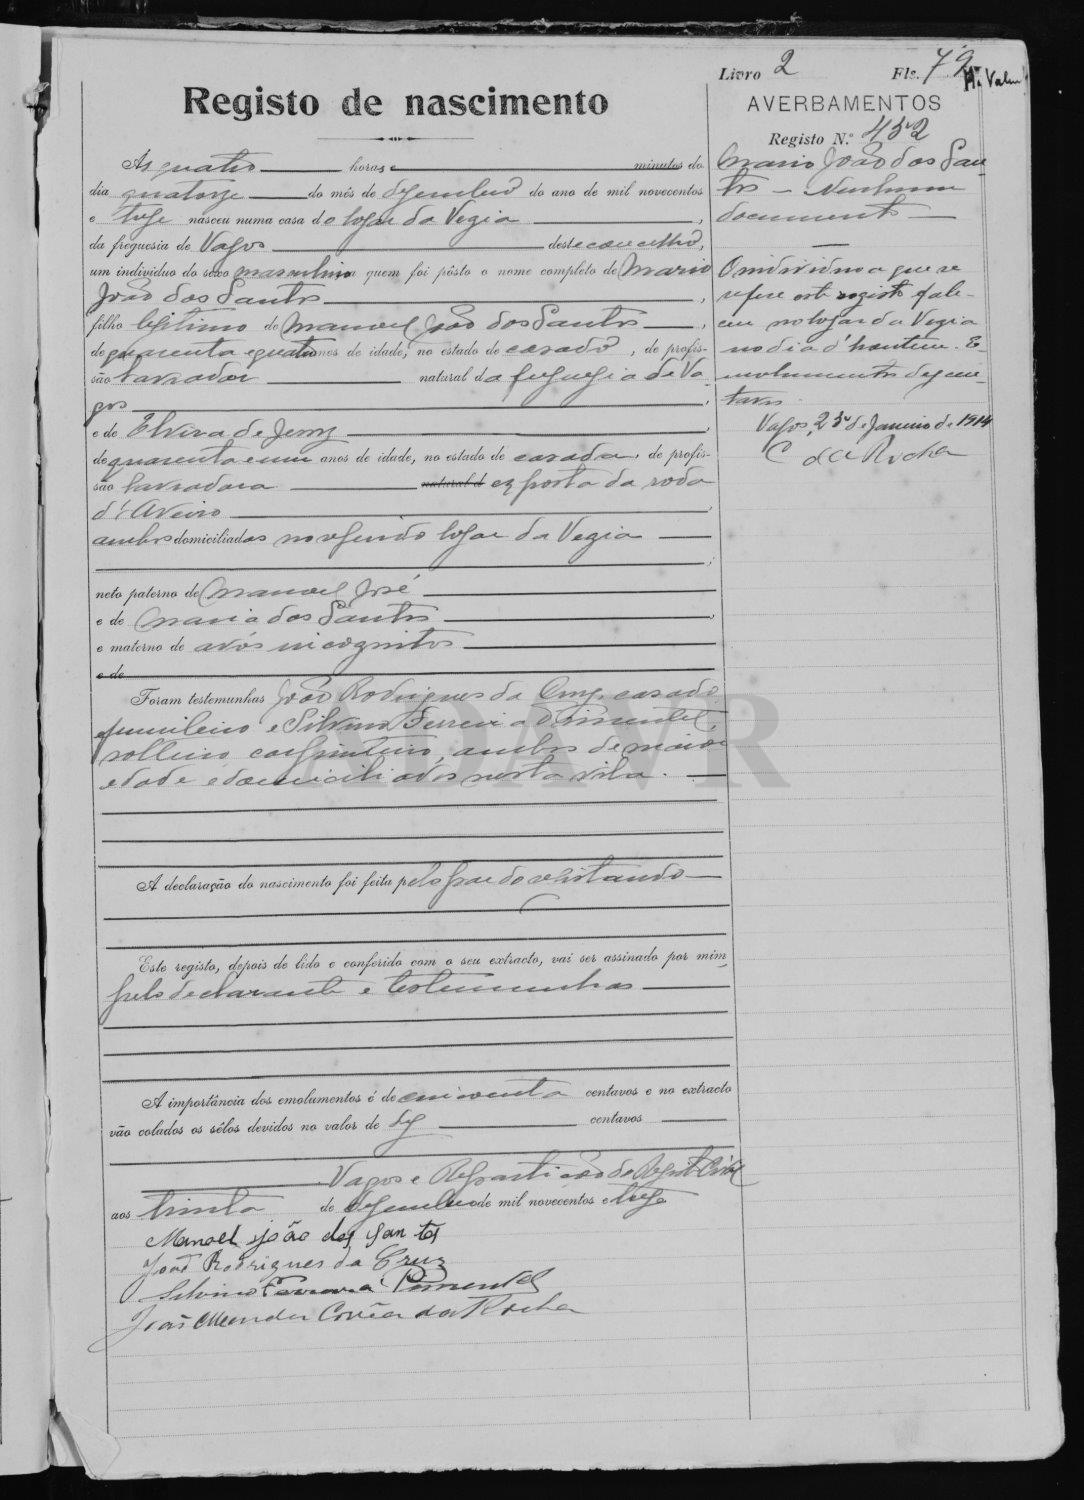 Livro 2 Fls. 72
Registo de nascimento
Ás quatro horas e minutos do
dia quatorze do mês de dezembro do ano de mil novecentos
e treze nasceu numa casa do logar da Vegia ,
da freguesia de Vagos deste concelho,
um individuo do sexo masculino a quem foi pôsto o nome completo de Mario
João dos Santos ,
filho legitimo de Manoel João dos Santos ,
de quarenta e quatro anos de idade, no estado de casado , de profis-
são lavrador natural da freguesia de Va-
gos ,
e de Elvira de Jesus ,
de quarenta e um anos de idade, no estado de casada, de profis-
são lavradora natural d exposta da roda
d'Aveiro ,
ambos domiciliados no referido logar da Vegia
;
neto paterno de Manoel José
e de Maria dos Santos ,
e materno de avós incognitos
e de
Foram testemunhas João Rodrigues da Cruz, casado,
funileiro e Silvino Ferreira Pimentel,
solteiro, carpinteiro, ambos de maior
edade e domiciliados nesta vila.
A declaração do nascimento foi feita pelo pae do registando
Este registo, depois de lido e conferido com o seu extracto, vai ser assinado por mim,
pelo declarante e testemunhas
A importância dos emolumentos é de cincoenta centavos e no extracto
vão colados os sêlos devidos no valor de centavos
Vagos e Repartição do Registo Civil
aos trinta de dezembro de mil novecentos e treze
Manoel João dos Santos
João Rodrigues da Cruz
Silvino Ferreira Pimentel
João Mendes Corrêa da Rocha
AVERBAMENTOS
Registo N.º 452
Mario João dos San-
tos – Nenhum
documento
O individuo a que se
refere este registo fale-
ceu no logar da Vegia
no dia d'hontem. E-
molumentos dez cen-
tavos.
Vagos, 25 de Janeiro de 1914
C da Rocha
ADAVR